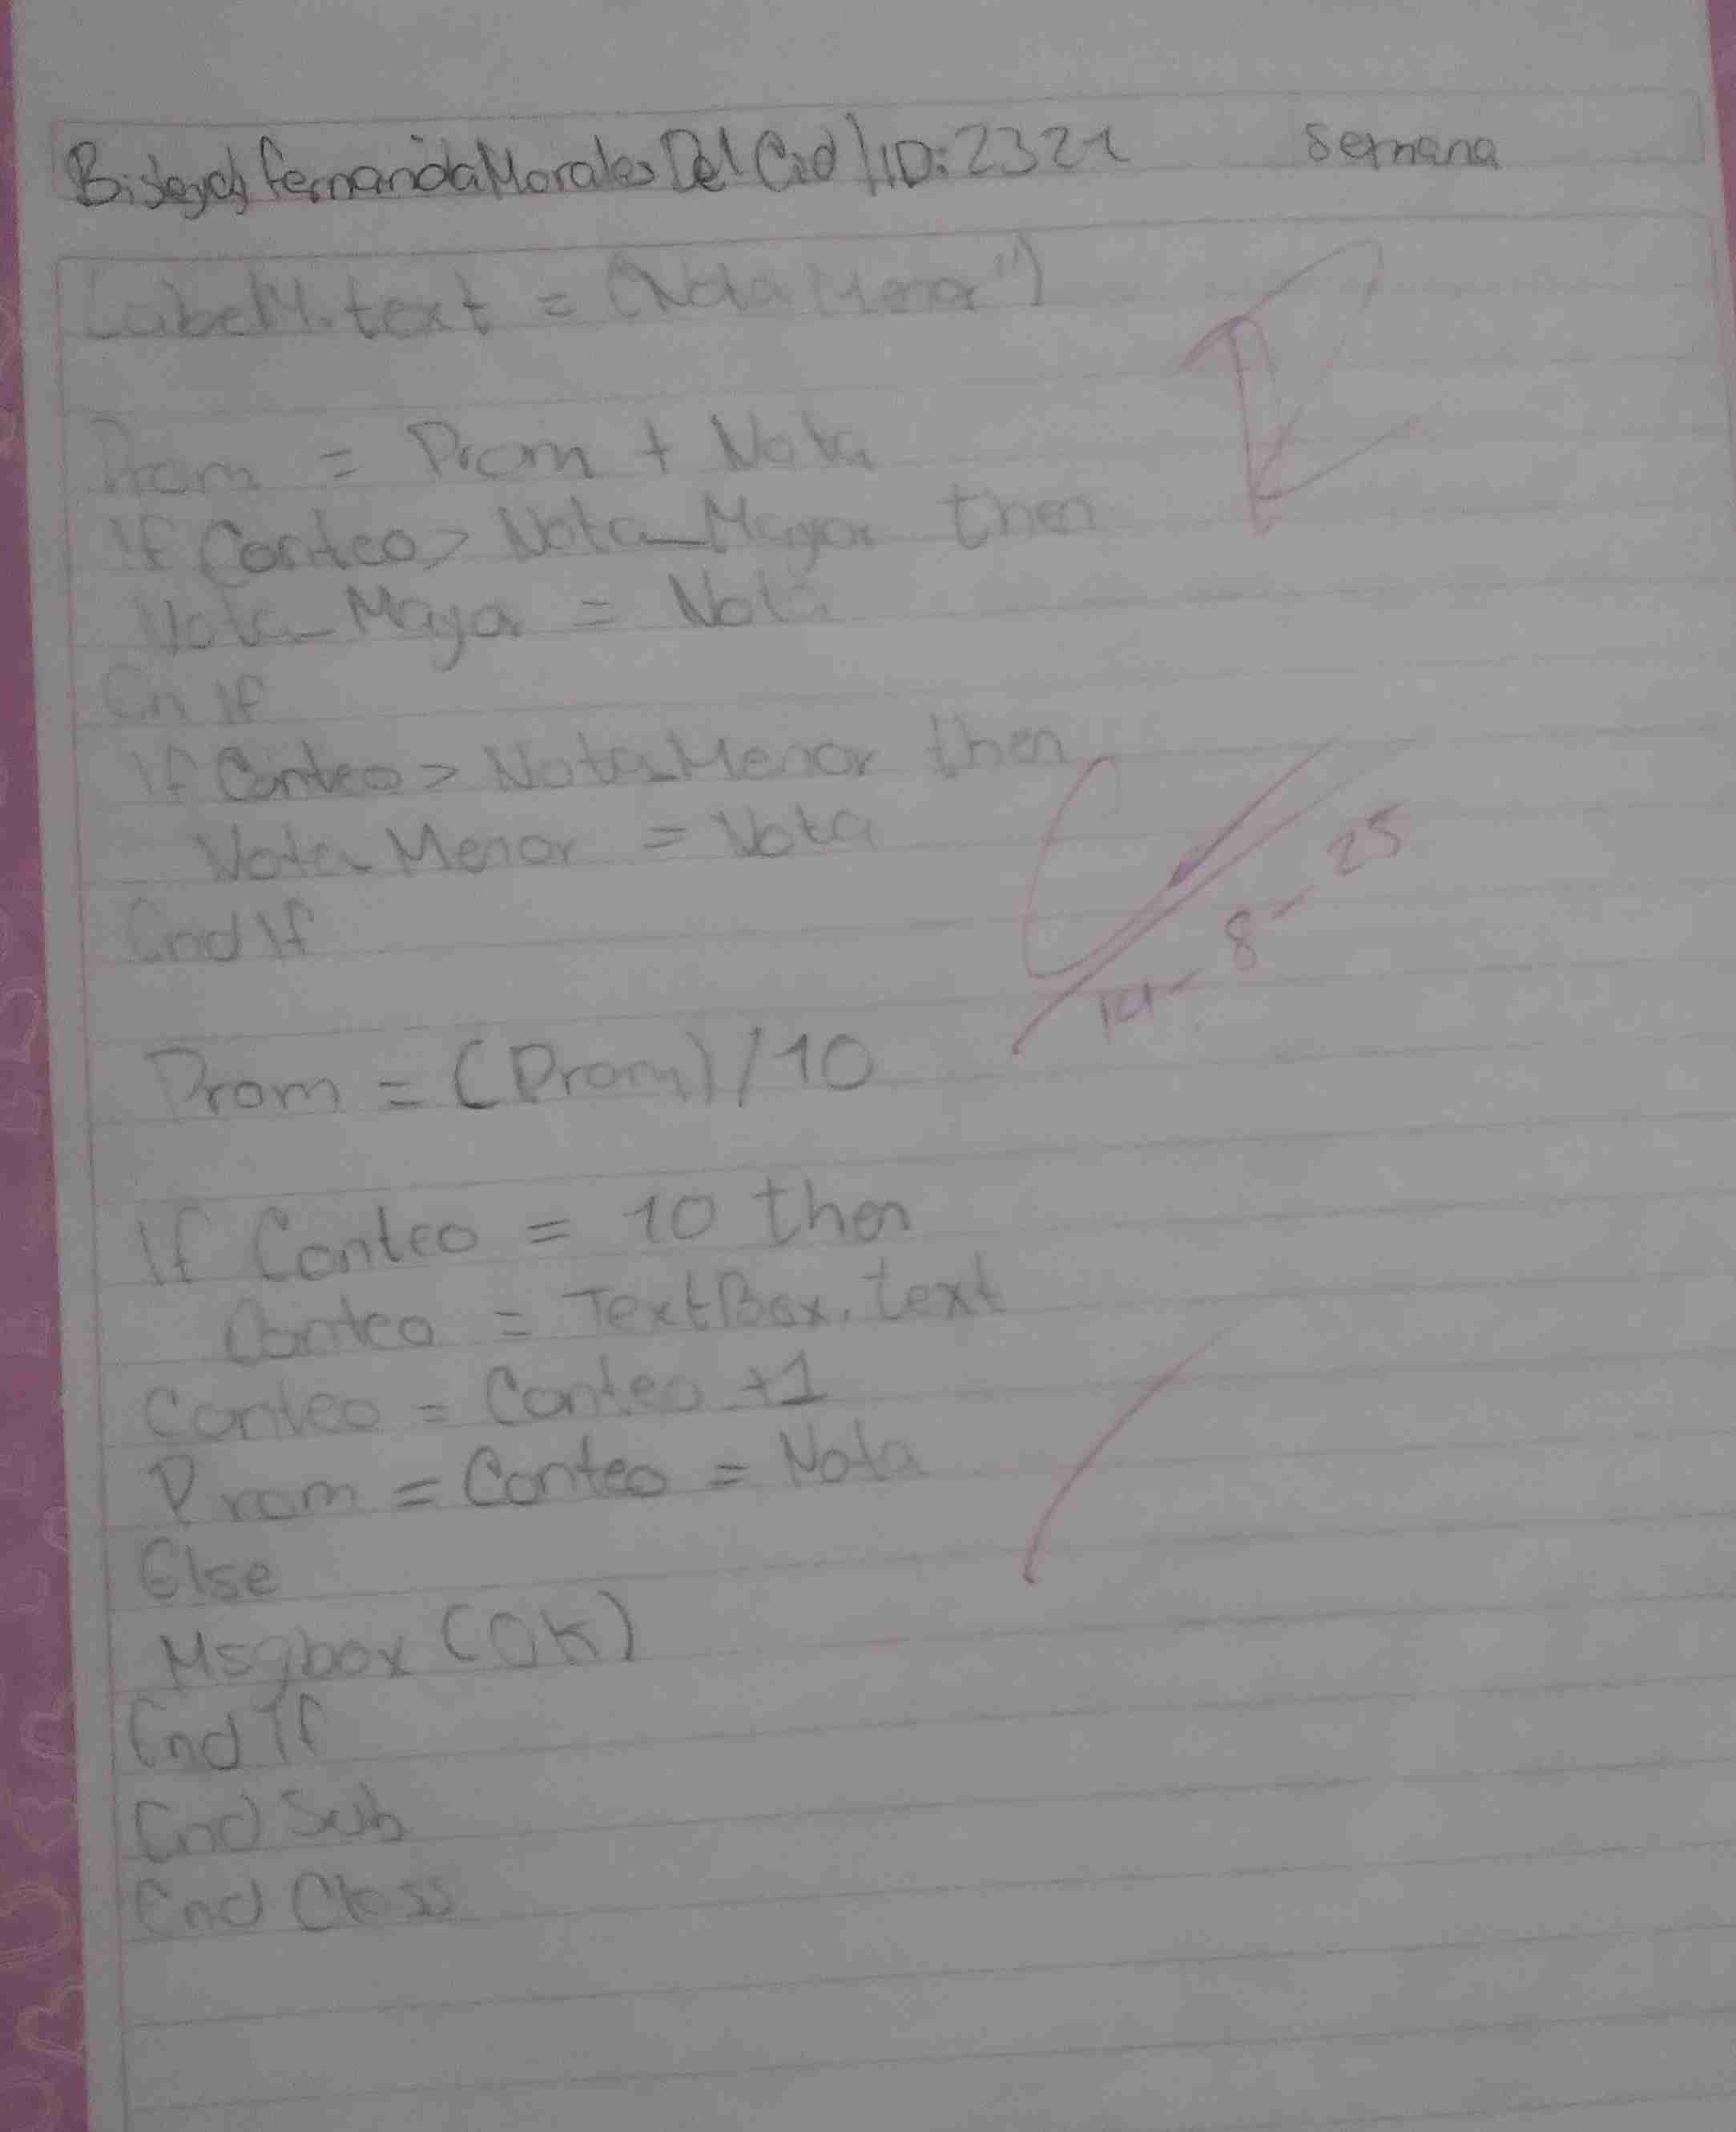 Fernanda Morales Del Cid | ID: 2321 Semana
Label4.text = ("Nota Menor")
Prom = Prom + Nota
If Conteo > Nota_Mayor then
Nota_Mayor = Nota
En If
If Conteo > Nota_Menor then
Nota_Menor = Nota
End If
14-8-25
Prom = (Prom)/10
If Conteo = 10 then
Conteo = TextBox.text
Conteo = Conteo +1
Prom = Conteo = Nota
Else
Msgbox (OK)
End If
End Sub
End Class